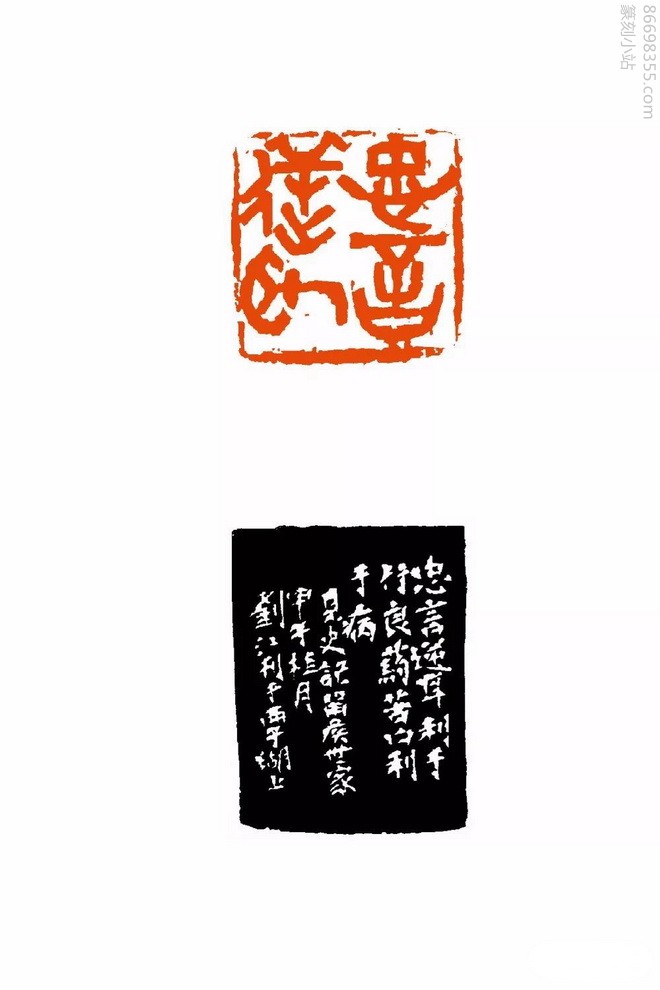 86698355.com
篆刻小站
忠言
逆耳
忠言逆耳利于
行良藥苦口利
于病
見史記留侯世家
甲午桂月
劉江刻于西子湖上